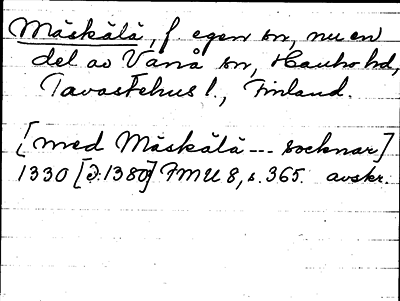 Mäskälä, f. egen sn, nu en
del av Vånå sn, Hauho hd,
Tavastehus l., Finland.
[med Mäskälä --- socknar]
1330 [d. 1380] FMU 8, s. 365. avskr.